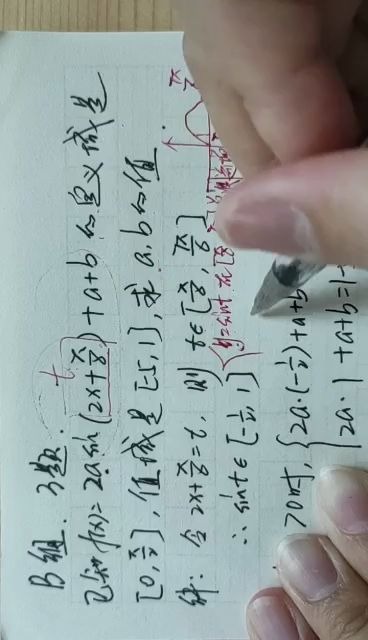 B组. 3题.
已知f(x)=2asin(2x+π/6)+a+b的定义域是
t
[0,π/2],值域是[-5,1],求a.b的值.
解:令2x+π/6=t,则t∈[π/6,7π/6]
y=sint在[π/6
∴sint∈[-1/2,1]
>0时,{2a·(-1/2)+a+b
2a·1+a+b=1